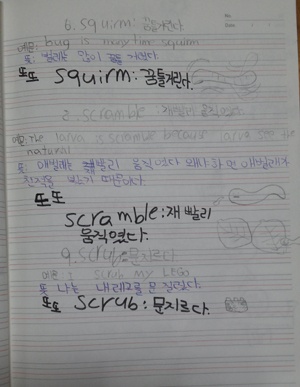 6. squirm: 꿈틀거린다.
예문: bug is many time squirm
뜻: 벌레는 많이 꿈틀 거린다.
또또 squirm: 꿈틀거린다.
2. scramble: 재빨리 움직였다.
예문: The larva is scramble because larva see the
natural
뜻 애벌레는 재빨리 움직였다 왜냐하면 애벌레가
때문이다.
또또
scramble: 재빨리
움직였다.
9. scrub: 문지르다
예문: scrub my LEGO
뜻 나는 내 레고를 문질렀다.
또또 scrub: 문지르다.